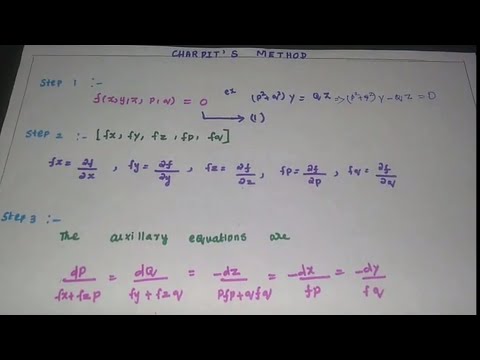 CHARPIT'S METHOD
Step 1 :-
f(x,y,z, p,q) = 0 ex (p²+q²) y = qz ⇒ (p²+q²) y - qz = 0
→ (1)
Step 2 :- [fx, fy, fz, fp, fq]
fx = ∂f/∂x , fy = ∂f/∂y , fz = ∂f/∂z , fp = ∂f/∂p , fq = ∂f/∂q
Step 3 :-
The auxillary equations are
dp/(fx+fzp) = dq/(fy+fzq) = -dz/(pfp+qfq) = -dx/fp = -dy/fq